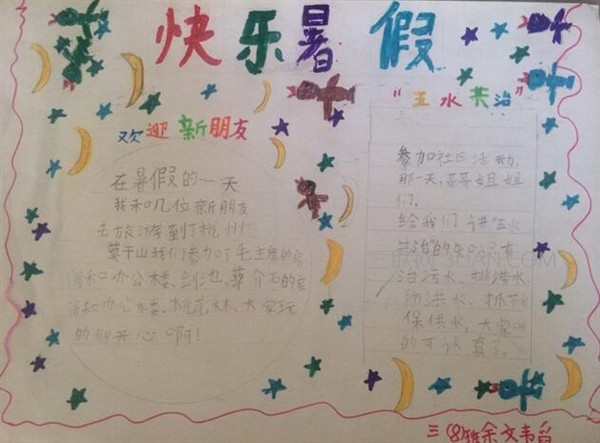 快乐暑假
欢迎新朋友
在暑假的一天
我和几位新朋友
去旅游到杭州
莫干山我们参加了毛主席的房
间和办公楼、剑池、蒋介石的房
间和办公楼、桃花林、大家玩
的好开心啊!
"五水共治"
参加社区活动,
那一天,哥哥姐姐
们,
给我们讲"五水
共治"的知识有
治污水、排涝水
防洪水、抓节水
保供水,大家
的可认真了。
三(8)班余文韦